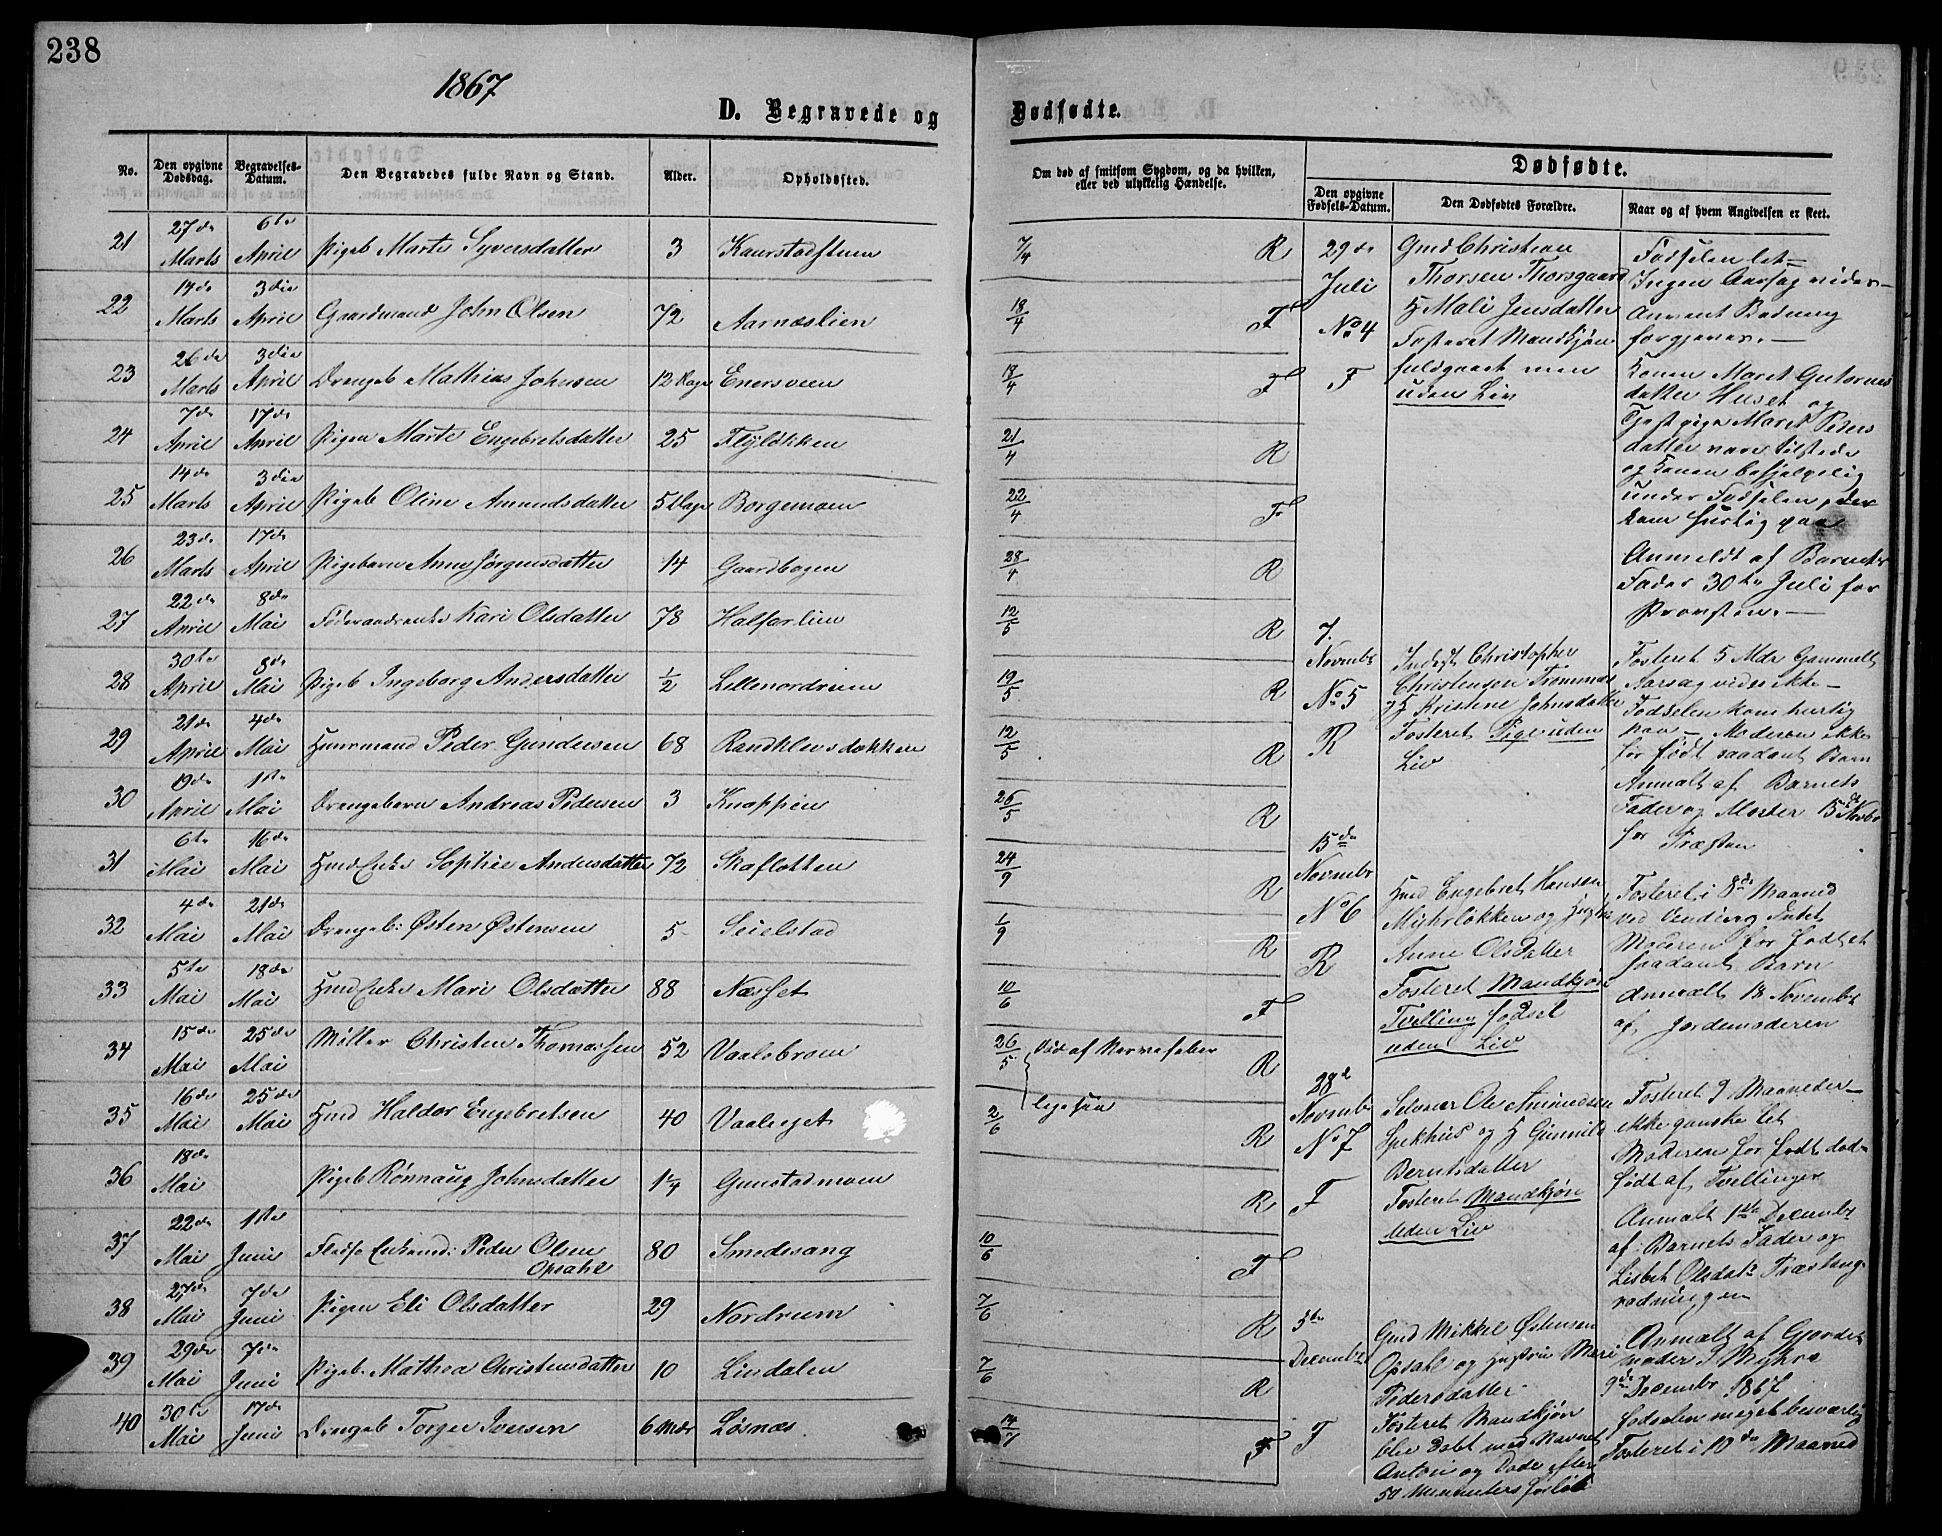 238
1867
D. Begravede og
No.
Den opgivne Dødsdag.
Begravelses-Datum.
Den Begravedes fulde Navn og Stand.
Alder.
Opholdssted.
21 27de Marts 6te April Pigeb Marte Syversdatter 3
22 14de Marts 3die April Gaardmand John Olsen 72 Aarnæslien
23 26de Marts 3die April Drengeb Mathias Johnsen 12 Dage Enersveen
24 7de April 17de April Pigen Marte Engebretsdatter 25 Flyløkken
25 14de Marts 3die April Pigeb Oline Amundsdatter 5 Dage Borgemoen
26 23de Marts 17de April Pigebarn Anne Jørgensdatter 14 Gaardbogen
27 22de April 8de Mai Kari Olsdatter 78
28 30te April 8de Mai Pigeb Ingeborg Andersdatter ½ Lillenordrum
29 21de April 4de Mai Huusmand Peder Gundersen 68 Randklevsløkken
30 19de April 1ste Mai Drengebarn Andreas Pedersen 3 Knappen
31 6te Mai 16de Mai Hmd Enke Sophie Andersdatter 72 Skaflotten
32 4de Mai 21de Mai Drengeb: Østen Østensen 5 Seielstad
33 5te Mai 18de Mai Hmd Enke Mari Olsdatter 88 Næsset
34 15de Mai 25de Mai Møller Christen Thomassen 52 Vaalsbroen
35 16de Mai 25de Mai Hmd Haldor Engebretsen 40
36 18de Mai Pigeb Rønnaug Johnsdatter 1¼ Gunstadmoen
37 22de Mai 1ste Juni Peder Olsen 80 Smedesang
Opsahl
38 27de Mai 7de Juni Pigen Eli Olsdatter 29 Nordrum
39 29de Mai 7de Juni Pigeb. Mathea Christensdatter 10 Lindalen
40 30te Mai 17de Juni Drengeb Torger Iversen 6 Mdr Løsnæs
Dødfødte.
Om død af smitsom Sygdom, og da hvilken, eller ved ulykkelig Hændelse.
Dødfødte.
Den opgivne Fødsels-Datum.
Den Dødfødtes Forældre.
Naar og af hvem Angivelsen er skeet.
7/4 R
18/4 F
18/4 F
21/4 R
22/4 F
28/4 R
12/5 R
19/5 R
12/5 R
26/5 R
24/9 R
1/9 R
10/6 F
26/5 Død af Nervefeber R
2/6 ligesaa R
R
10/6 F
7/6 R
7/6 R
14/7 F
29de Juli
No 4
F
Gmd Christian
Thorsen Thorsgaard
H Mali Jensdatter
Fosteret Mandkjøn
fuldgaaet men
uden Liv
Fødselen let –
Ingen Aarsag vides –
Anvent Badning
forgjeves. –
Konen Maret Guttorms
datter Huset og
Pige Marit Peders
datter vare tilstede
og Konen behjelpelig
under Fødselen, der
kom hurtig paa
Anmeldt af Barnets
Fader 30te Juli for
Provsten. –
7. Novmbr
No 5
R
Inderst Christopher
Christensen Tromnæs
og H Kristine Johnsdatter
Fosteret Pige uden
Liv
Fosteret 5 Mdr Gammelt
Aarsag vides ikke –
Fødselen kom hurtig
paa – Moderen ikke
før født saadant Barn
Anmelt af Barnets
Fader og Moster 15de Novbr
for Præsten
15de Novmbr
No 6
R
Hmd Engebret Hansen
Myhrløkken og Hustru
Anne Olsdatter
Fosteret Mandkjøn
Tvilling fødsel
uden Liv
Fosteret i 8de Maaned
Moderen før Født et
saadant Barn
Anmelt 18 Novembr
af Jordemoderen
28d Novmbr
No 7
F
Selveier Ole Amundsen
Spekhus og H Gunnild
Berntsdatter
Fosteret Mandkjøn
Uden Liv
Fosteret 9 Maaneder –
ikke ganske let
Moderen før født død-
født af Tvillinger
Anmelt 1ste Decembr
af Barnets Fader og
Lisbet Olsdatr
5te Decembr
F
Gmd Mikkel Østensen
Opsahl og Hustru Mari
Pedersdatter
Fosteret Mandkjøn
blev Døbt med Navnet
Anton og Døde efter
50 Minuters Forløb
Anmelt af Gjorde-
moder P Myhre
9de Decembr 1867
fødselen meget besværlig
Fosteret i 10de Maaned